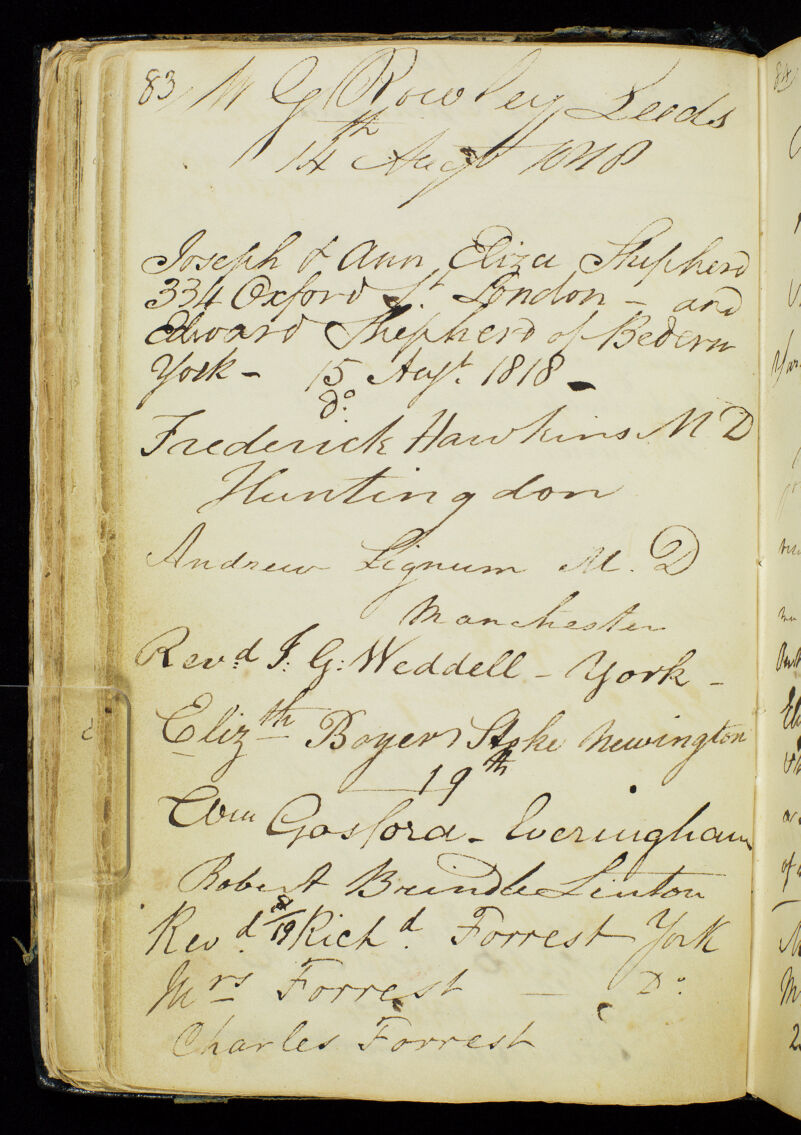 83 W G Rowley Leeds
14th Augst 1818
Joseph & Ann Eliza Shepherd
334 Oxford St. London - and
Edward Shepherd of Bedern
York - 15 Augt. 1818 -
do.
Frederick Hawkins M D
Huntingdon
Andrew Lignum M. D
Manchester
Revd. J. G: Weddell - York -
Elizth Boyer Stoke Newington
19th
Wm Gosford - Everingham
Robert Linton
Revd. 8/19 Richd. Forrest York
Mrs Forrest - Do.
Charles Forrest